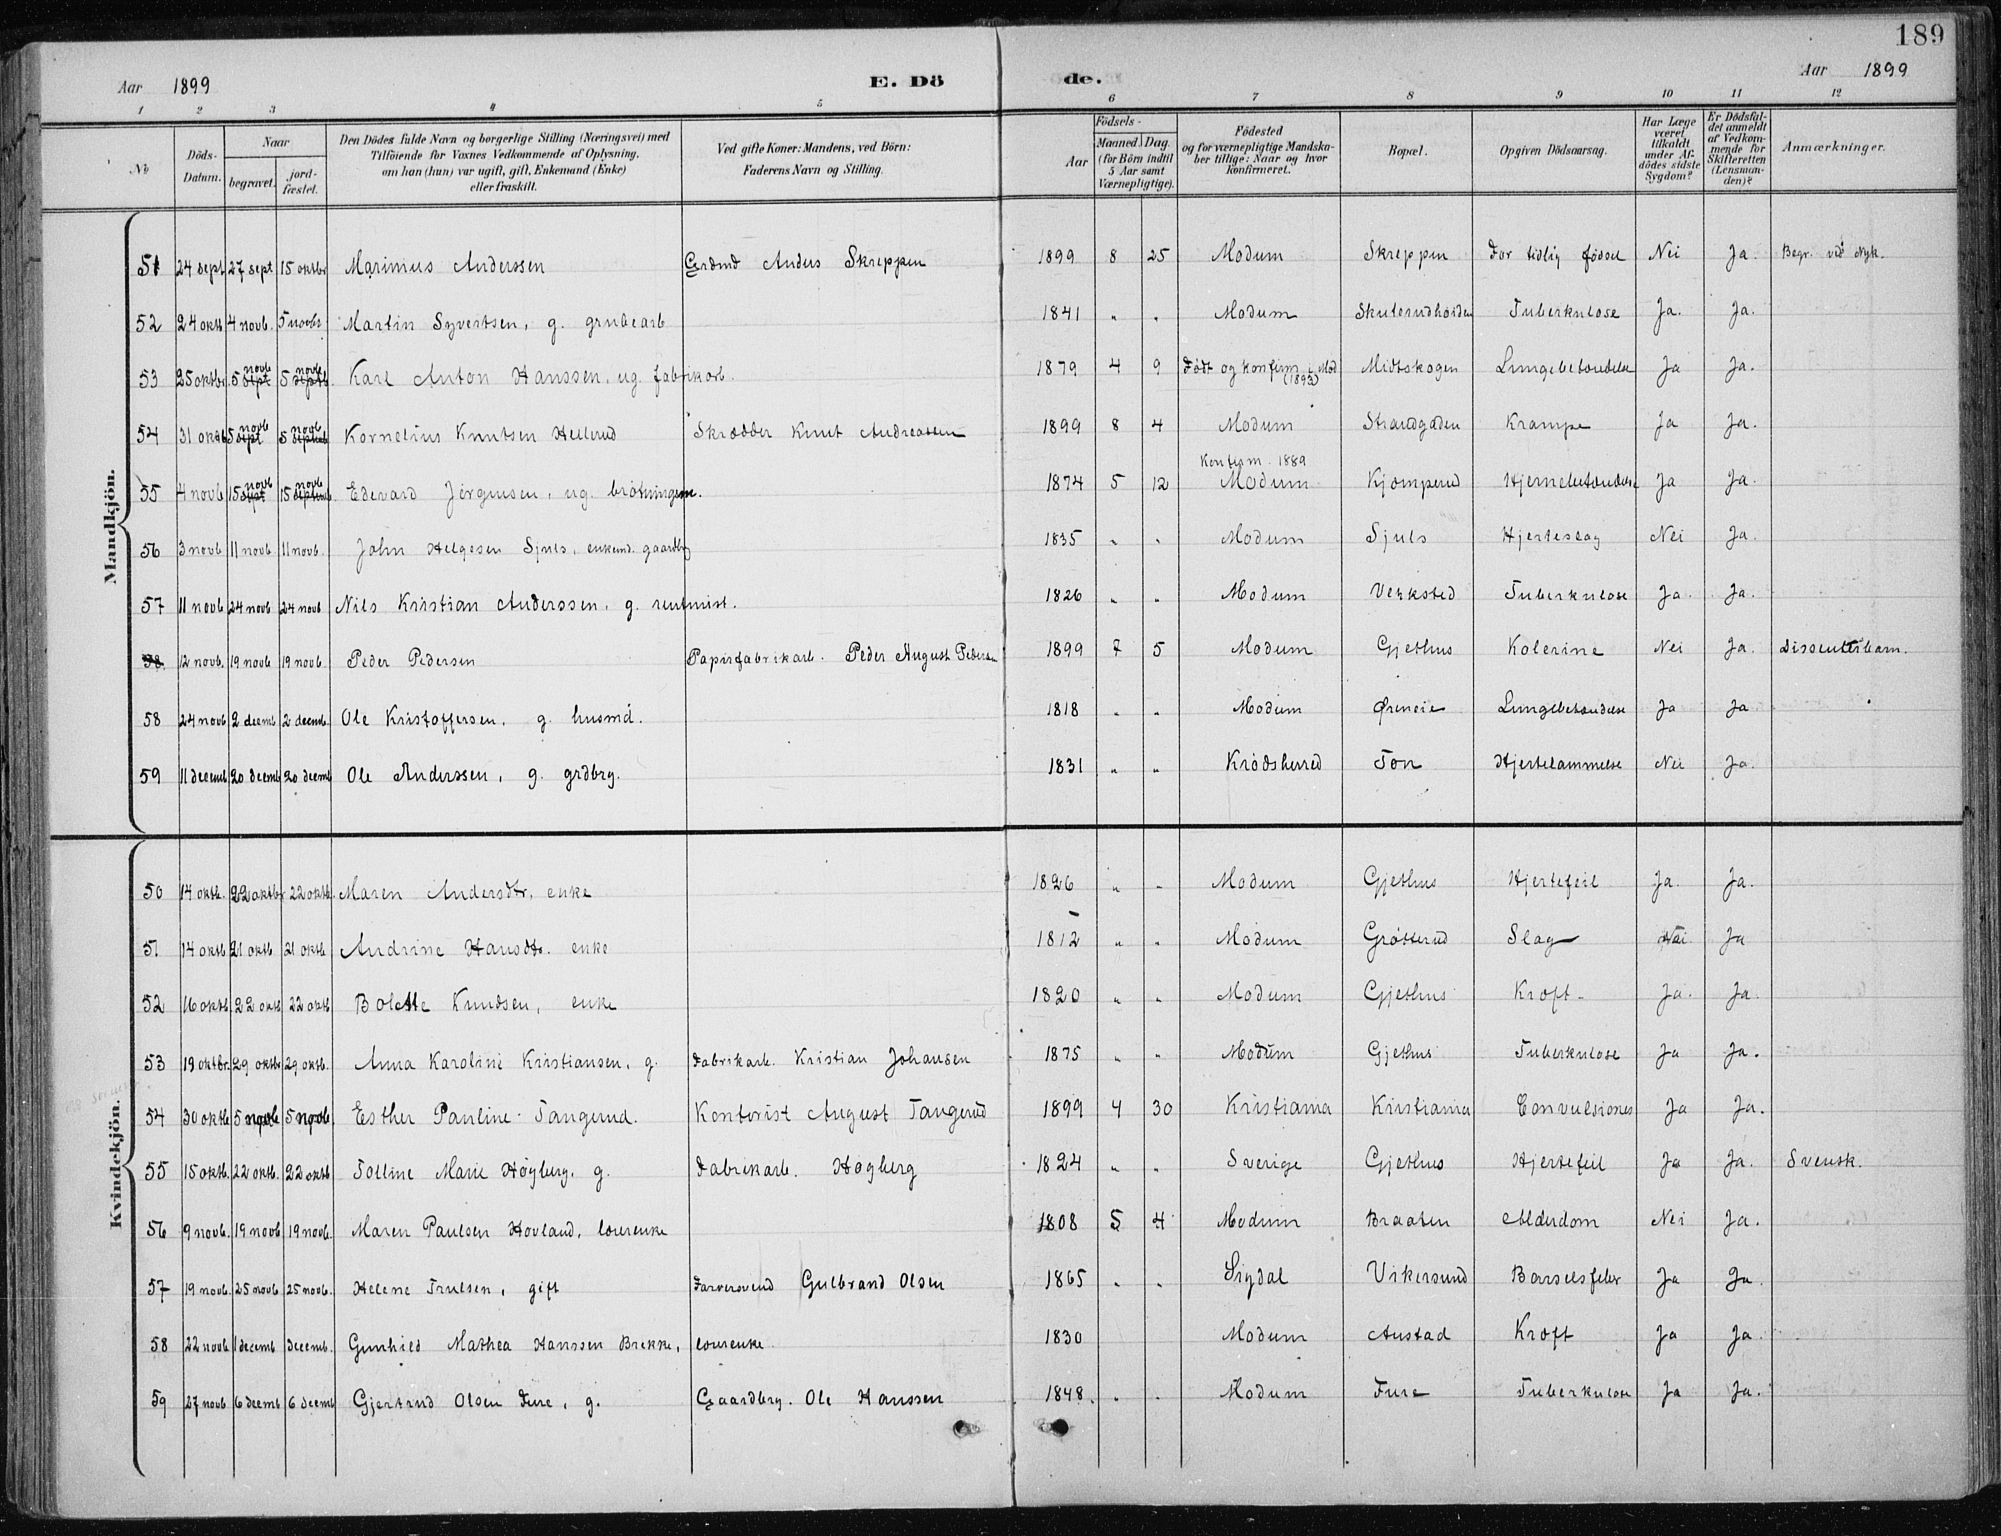 189
Aar 1899 E. Dö de. Aar 1899
1 2 3 4 5 6 7 8 9 10 11 12
No
Döds-Datum.
Naar
begravet.
jord-fæstet.
Den Dödes fulde Navn og borgerlige Stilling (Næringsvei) med
Tilföiende for Voxnes Vedkommende af Oplysning,
om han (hun) var ugift, gift, Enkemand (Enke)
eller fraskilt.
Ved gifte Koner: Mandens, ved Börn:
Faderens Navn og Stilling.
Födsels-
Aar
Maaned. Dag.
(for Börn indtil
5 Aar samt
Værnepligtige).
Födested
og for værnepligtige Mandska-
ber tillige: Naar og hvor
konfirmeret.
Bopæl.
Opgiven Dödsaarsag.
Har Læge
været
tilkaldt
under Af-
dödes sidste
Sygdom?
Er Dödsfal-
det anmeldt
af Vedkom-
mende for
Skifteretten
(Lensman-
den)?
Anmærkninger.
Mandkjön.
51 24 sept 27 sept 15 oktbr Marinius Anderssen Grdmd Anders Skreppen 1899 8 25 Modum Skreppen For tidlig fødsel Nei Ja Begr. ved Nyk.
52 24 oktb 4 novb. 5 novbr Martin Syvertsen, g. grubearb 1841 " " Modum Tuberkulose Ja. Ja.
53 25 oktbr. 5 novb sept 5 novb septb Karl Anton Hanssen, ug. fabrikarb. 1879 4 9 Født og konfirm i Mod (1893) Midtskogen Lungebetændelse Ja Ja.
54 31 oktb 5 novb sept 5 novb septemb Kornelius Knutsen Hellerud Skrædder Knut Andreassen 1899 8 4 Modum Strandgaden Krampe Ja Ja.
55 4 novb 15 novb sept 15 novb septemb Edevard Jørgensen, ug. brøtningsm. 1874 5 12 Konfirm. 1889 Modum Kjømperud Hjernebetændelse Ja Ja.
56 3 novb 11 novb 11 novb. John Helgesen Sjuls, enkemd. gaardbr 1835 " " Modum Sjuls Hjerteslag Nei Ja.
57 11 novb 24 novb 24 novb Nils Kristian Anderssen, g. rentenist. 1826 " " Modum Verksted Tuberkulose Ja. Ja.
58 12 novb. 19 novb 19 novb. Peder Pedersen Papirfabrikarb. Peder August Pedersen 1899 7 5 Modum Gjethus Kolerine Nei Ja. Dissenterbarn.
58 24 novb 2 decemb 2 decemb. Ole Kristoffersen, g. husmd. 1818 " " Modum Øreneie Lungebetændelse Ja Ja
59 11 decemb 20 decemb 20 decemb Ole Anderssen, g. grdbrg. 1831 " " Krødsherred Ton Hjertelammelse Nei Ja.
Kvindekjön.
50 14 oktb. 22 oktbr 22 oktb. Maren Andersdtr, enke 1826 " " Modum Gjethus Hjertefeil Ja. Ja.
51 14 oktb 21 oktb 21 oktb Andrine Hansdtr. enke 1812 " " Modum Grøtterud Slag Nei Ja
52 16 oktb 22 oktb 22 oktb Bolette Knudsen, enke 1820 " " Modum Gjethus Kræft Ja. Ja.
53 19 oktbr. 29 oktb 29 oktb. Anna Karoline Kristiansen, g. Fabrikarb. Kristian Johansen 1875 " " Modum Gjethus Tuberkulose Ja Ja.
54 30 oktb 5 novb 5 novb. Esther Pauline Tangerud. Kontorist August Tangerud 1899 4 30 Kristiania Kristiania Convulsiones Ja Ja.
55 15 oktb. 22 oktb. 22 oktb Tolline Marie Høgberg, g. Fabrikarb. Høgberg 1824 " " Sverige Gjethus Hjertefeil Ja Ja. Svensk.
56 9 novb. 19 novb 19 novb. Maren Paulsen Hovland, lourenke 1808 5 4 Modum Braaten Alderdom Nei Ja.
57 19 novb. 25 novb 25 novb. Helene Trulsen, gift Farversvend Gulbrand Olsen 1865 " " Sigdal Vikersund Barselsfeber Ja Ja.
58 22 novb 1 decemb decemb. Gunhild Mathea Hanssen Brekke, lourenke 1830 Modum Austad Kræft Ja Ja.
59 27 novb 6 decemb 6 decemb Gjertrud Olsen Fure, g. Gaardbrg. Ole Hanssen 1848. " " Modum Fure Tuberkulose Ja Ja.